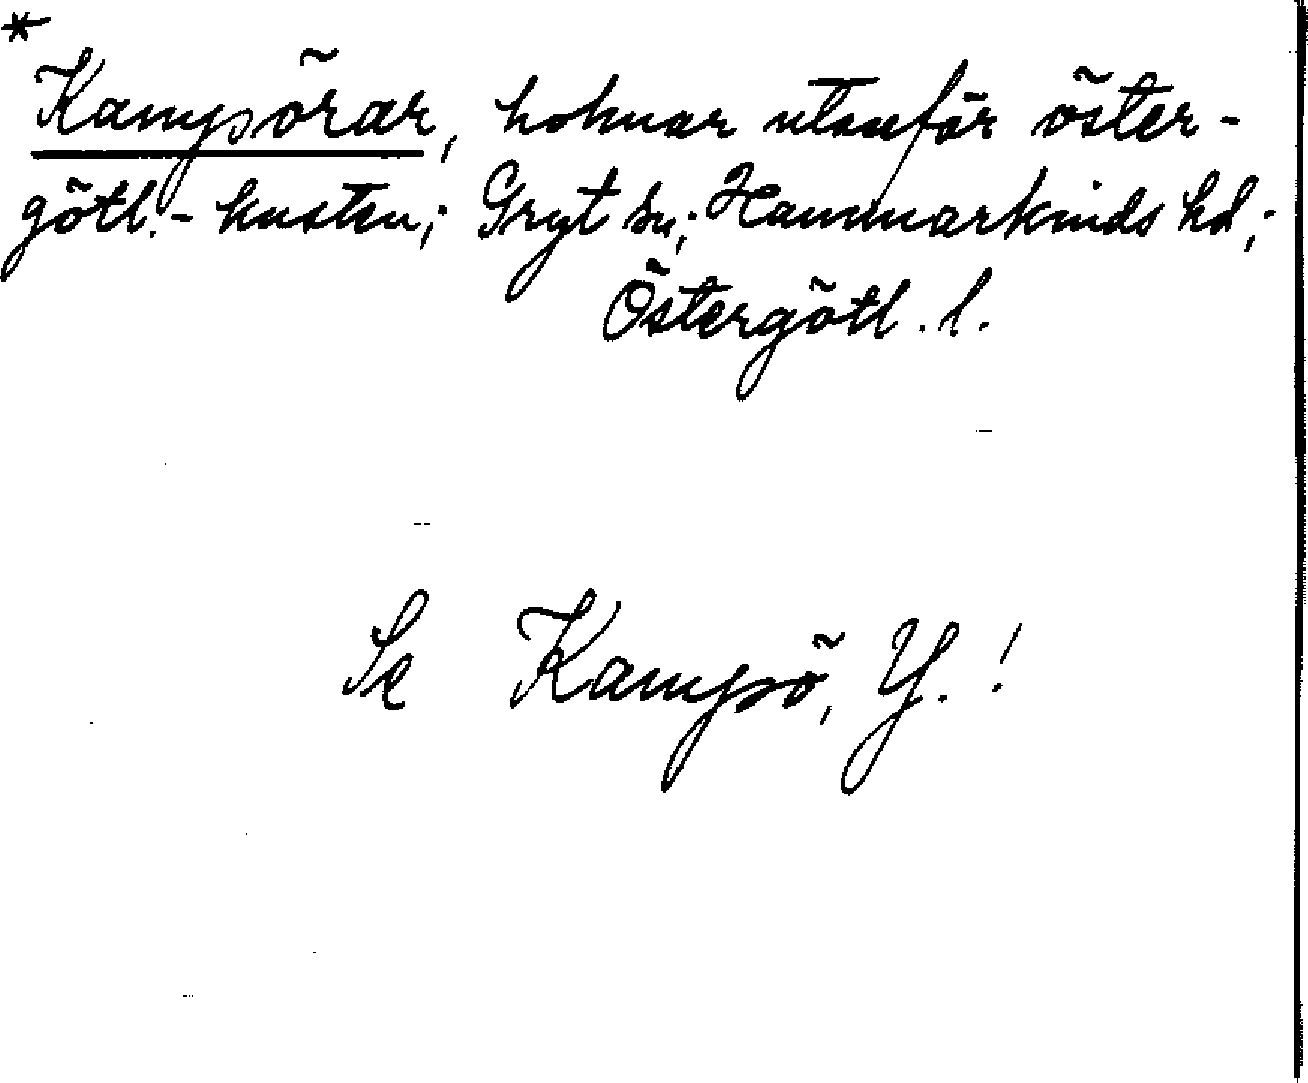 *
Kampörar, holmar utanför öster-
götl.-kusten; Gryt sn; Hammarkinds hd;
Östergötl. l.
Se Kampö, Y.!